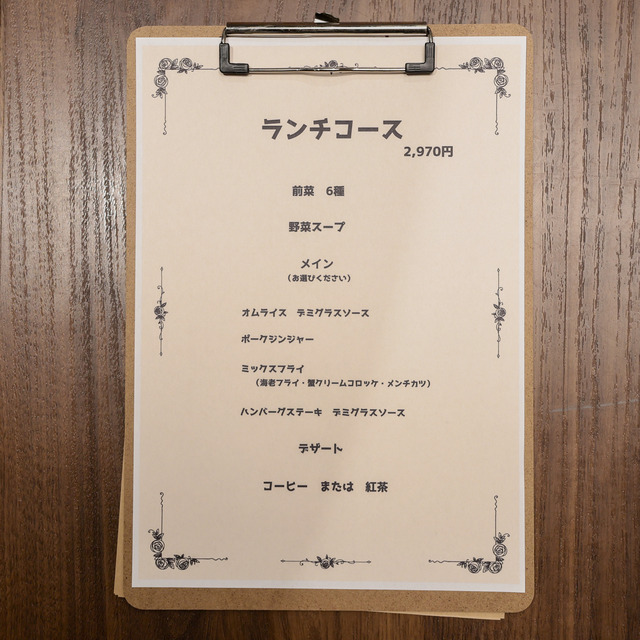 ランチコース
2,970円
前菜　6種
野菜スープ
メイン
（お選びください）
オムライス　デミグラスソース
ポークジンジャー
ミックスフライ
（海老フライ・蟹クリームコロッケ・メンチカツ）
ハンバーグステーキ　デミグラスソース
デザート
コーヒー　または　紅茶